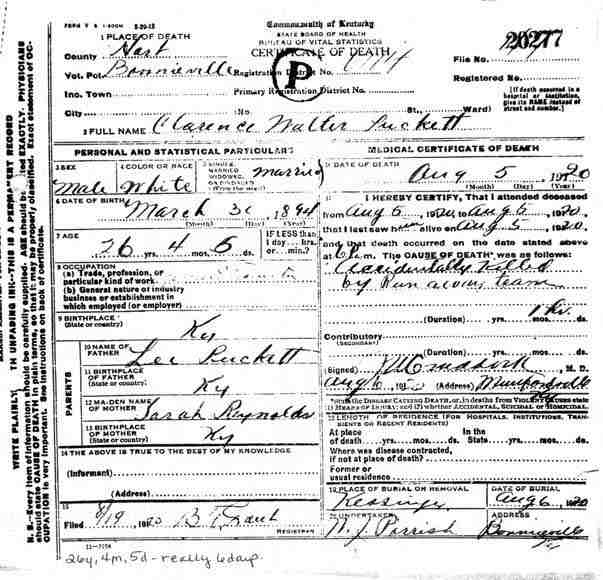 FORM V S 1-500M 5-20-18
1 PLACE OF DEATH
County Hart
Vot. Pct. Bonnieville
Inc. Town
City
Commonwealth of Kentucky
STATE BOARD OF HEALTH
BUREAU OF VITAL STATISTICS
CERTIFICATE OF DEATH
Registration District No.
Primary Registration District No.
(No. St., Ward)
P
File No. 20277
Registered No.
[If death occurred in a
hospital or institution,
give its NAME instead of
street and number.]
2 FULL NAME Clarence Walter Puckett
PERSONAL AND STATISTICAL PARTICULARS
3 SEX
Male
4 COLOR OR RACE
White
5 SINGLE,
MARRIED
WIDOWED,
OR DIVORCED
(Write the word)
Married
6 DATE OF BIRTH
March 30, 1894
(Month) (Day) (Year)
7 AGE
26 4 6
IF LESS than
1 day.... hrs.
or... min.?
8 OCCUPATION
(a) Trade, profession, or
particular kind of work
(b) General nature of industry
business or establishment in
which employed (or employer)
9 BIRTHPLACE
(State or country)
Ky
PARENTS
10 NAME OF
FATHER
Lee Puckett
11 BIRTHPLACE
OF FATHER
(State or country)
Ky
12 MAIDEN NAME
OF MOTHER
Sarah Reynolds
13 BIRTHPLACE
OF MOTHER
(State or country)
Ky
14 THE ABOVE IS TRUE TO THE BEST OF MY KNOWLEDGE
(Informant)
(Address)
15
Filed 8/19 1920
REGISTRAR
11-3184
MEDICAL CERTIFICATE OF DEATH
16 DATE OF DEATH
Aug 5, 1920
(Month) (Day) (Year)
17 I HEREBY CERTIFY, That I attended deceased
from Aug 5, 1920, Aug 5, 1920,
that I last saw him alive on Aug 5, 1920,
and that death occurred on the date stated above
at 6 m. The CAUSE OF DEATH* was as follows:
Accidentally killed
by Run away team
1 hr.
(Duration) yrs. mos. ds.
Contributory
(SECONDARY)
(Duration) yrs. mos. ds.
(Signed) M. D.
Aug 6, 1920 (Address) Munfordville
Ky
*State the DISEASE CAUSING DEATH, or, in deaths from VIOLENT CAUSES state
(1) MEANS OF INJURY; and (2) whether ACCIDENTAL, SUICIDAL or HOMICIDAL.
18 LENGTH OF RESIDENCE (FOR HOSPITALS, INSTITUTIONS, TRAN-
SIENTS OR RECENT RESIDENTS)
At place In the
of death yrs. mos. ds. State yrs. mos. ds.
Where was disease contracted,
if not at place of death?
Former or
usual residence
19 PLACE OF BURIAL OR REMOVAL
Kessinger
DATE OF BURIAL
Aug 6, 1920
20 UNDERTAKER
N. J. Parrish
ADDRESS
Bonnieville
Ky
26y, 4m, 5d - really 6 days
WRITE PLAINLY, WITH UNFADING INK—THIS IS A PERMANENT RECORD
N. B.—Every item of information should be carefully supplied. AGE should be stated EXACTLY. PHYSICIANS
should state CAUSE OF DEATH in plain terms, so that it may be properly classified. Exact statement of OC-
CUPATION is very important. See instructions on back of certificate.